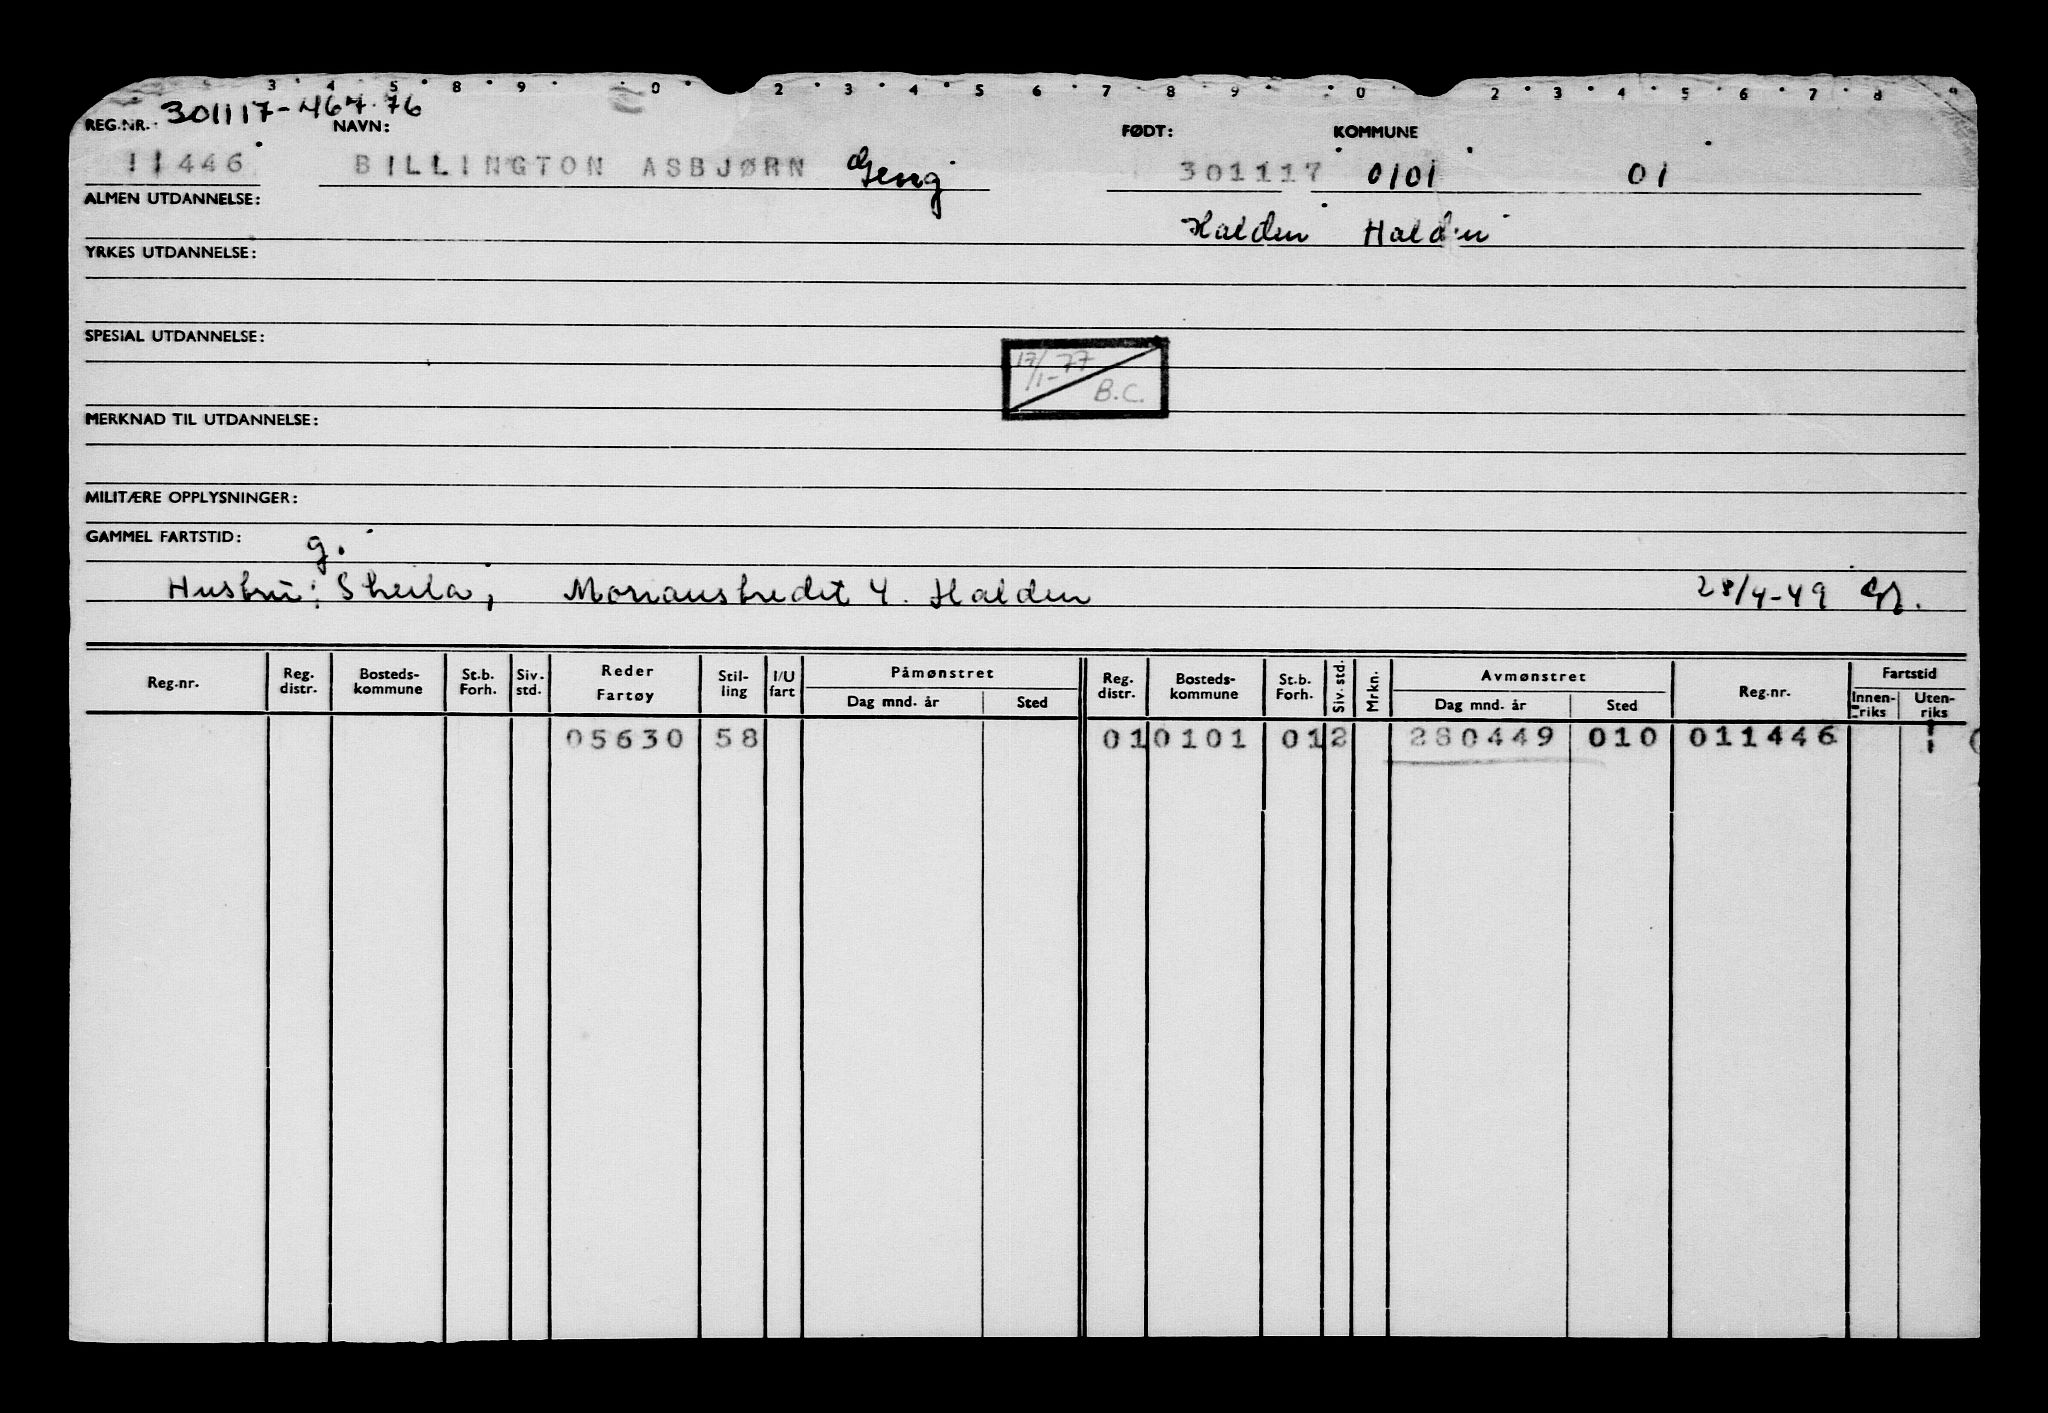 3 4 5 8 9 0 2 3 4 5 6 7 8 9 0 2 3 4 5 6 7 8 9
301117-46476
REG.NR. NAVN: FØDT: KOMMUNE
11446 BILLINGTON ASBJØRN Georg 301117 0101 01
ALMEN UTDANNELSE:
Halden Halden
YRKES UTDANNELSE:
SPESIAL UTDANNELSE:
17/1-77
B.C.
MERKNAD TIL UTDANNELSE:
MILITÆRE OPPLYSNINGER:
GAMMEL FARTSTID:
g.
Hustru: Sheila, 4. Halden 28/4-49
Reg.nr. Reg. distr. Bosteds-kommune St.b. Forh. Siv. std. Reder Fartøy Stil-ling I/U fart Påmønstret Dag mnd. år Sted Reg. distr. Bosteds-kommune St.b. Forh. Siv. std. Mrkn. Avmønstret Dag mnd. år Sted Reg.nr. Fartstid Innen-riks Uten-riks
05630 58 01 0101 01 2 280449 010 011446